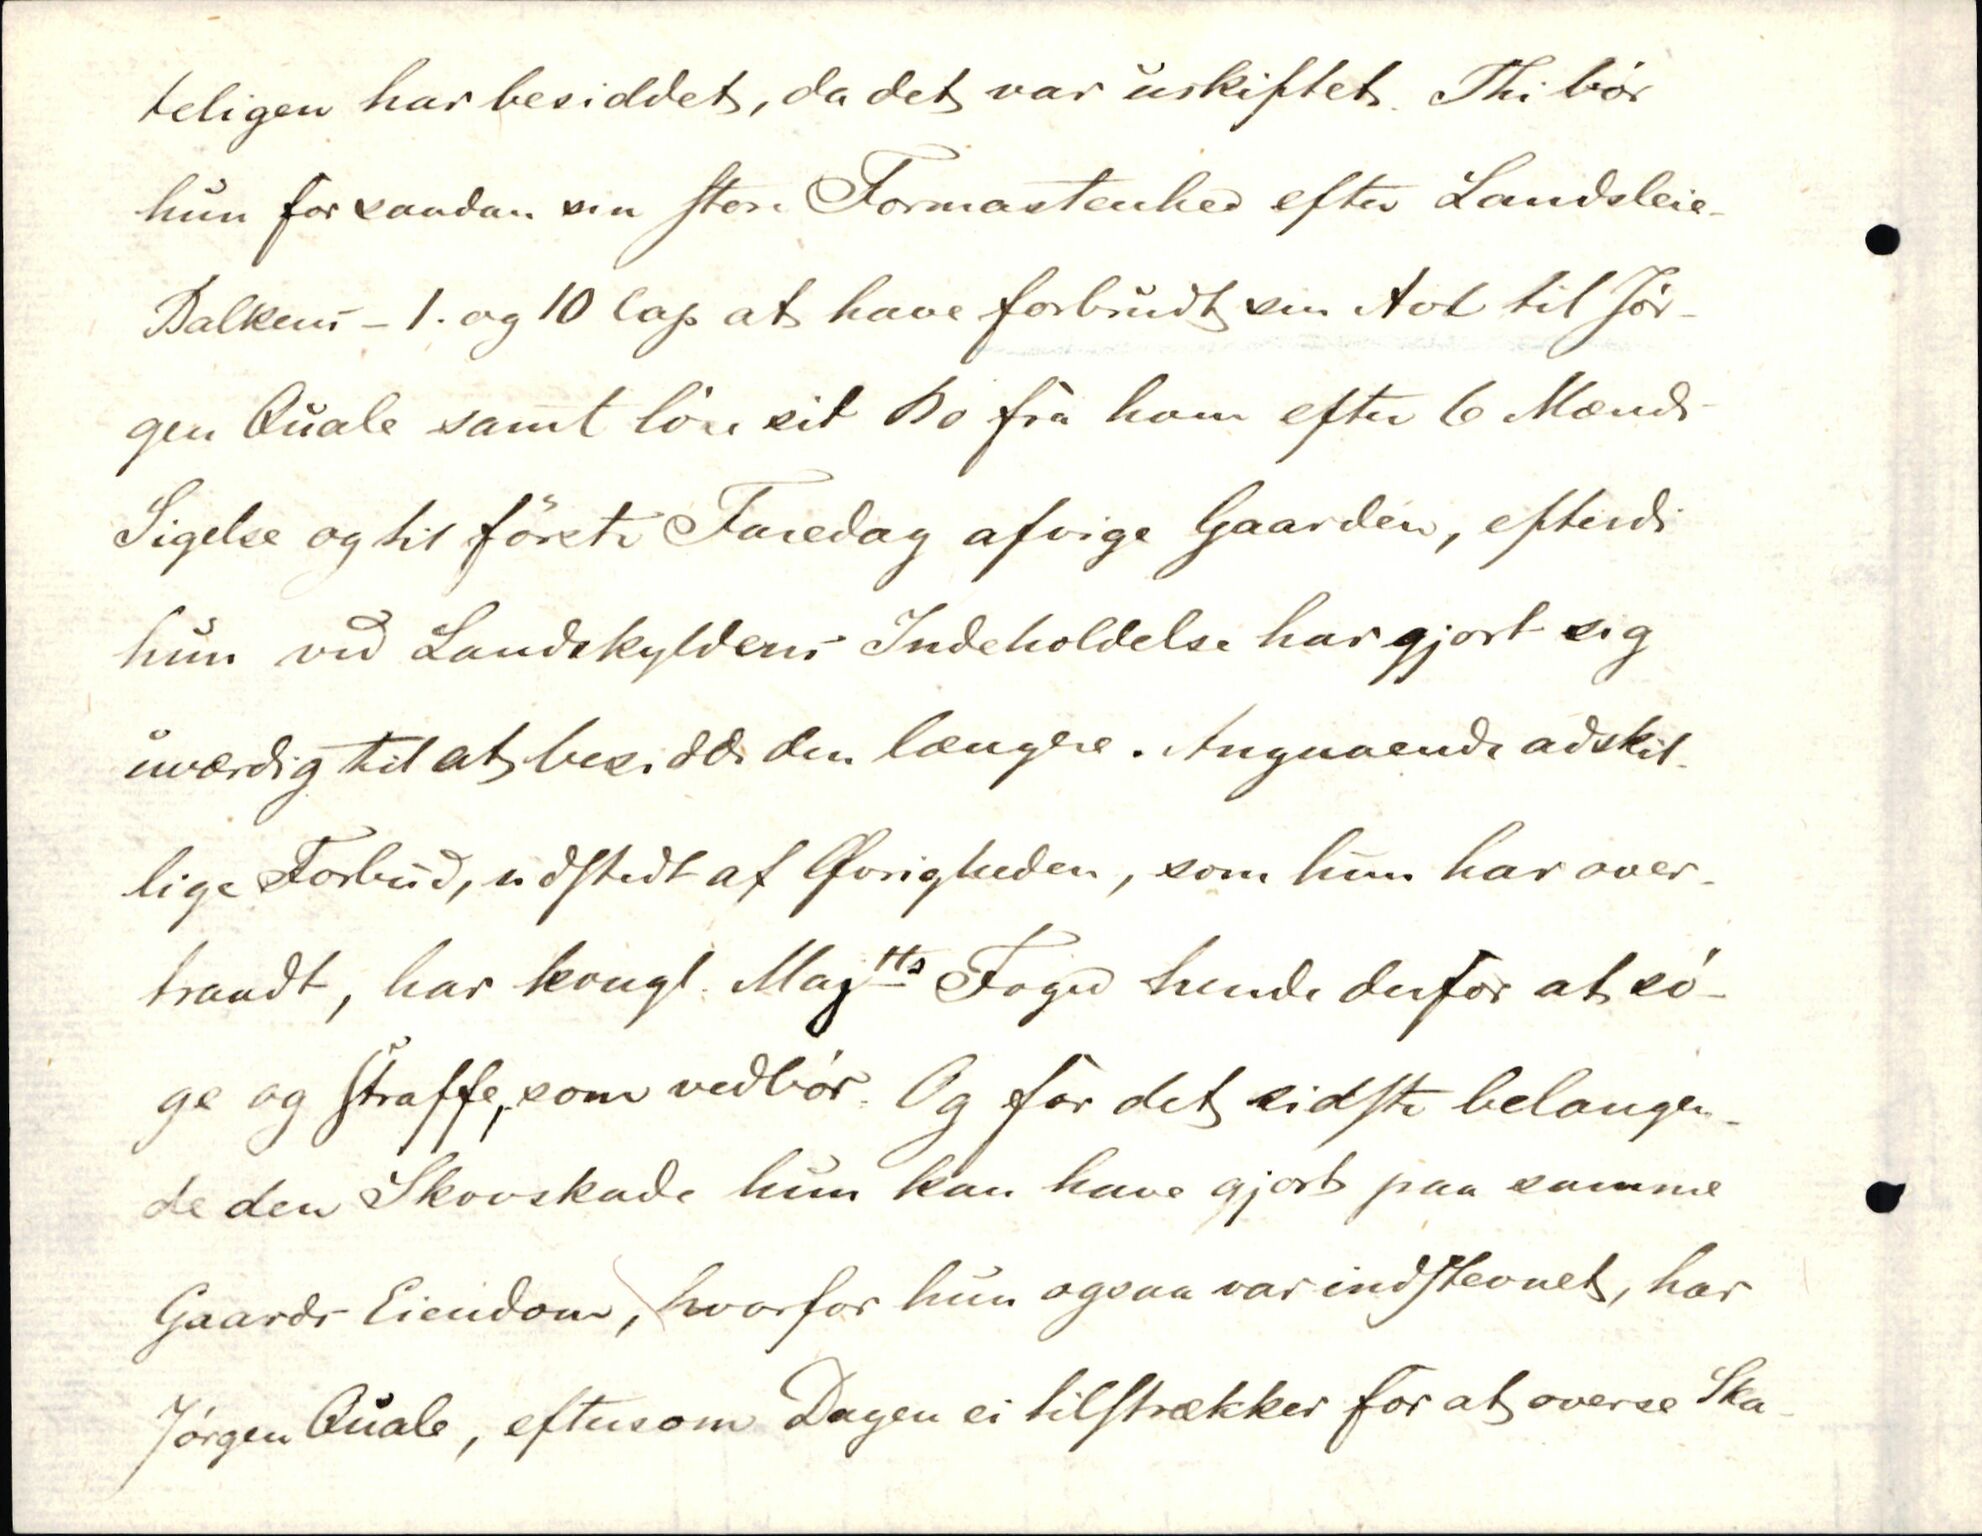 teligen har besiddet, da det var uskiftet. Thi bör
hun for saadan sin store Formastenhed efter Landsleie-
Balkens - 1. og 10 Cap. at have forbrudt sin Avl til Jör-
gen Quale samt löse sit Bo fra ham efter 6 Mænds
Sigelse og til förste Faredag afvige Gaarden, efterdi
hun ved Landskyldens Indeholdelse har gjort sig
uværdig til at besidde den længere. Angaaende adskil-
lige Forbud, udstedt af Øvrigheden, som hun har over-
traadt, har kongl. Majtts Foged hende derfor at sö-
ge og straffe, som vedbör. Og for det sidste belangen-
de den Skovskade hun kan have gjort paa samme
Gaards Eiendom, hvorfor hun ogsaa var indstevnet, har
Jörgen Quale, eftersom Dagen ei tilstrækker for at overse Ska-